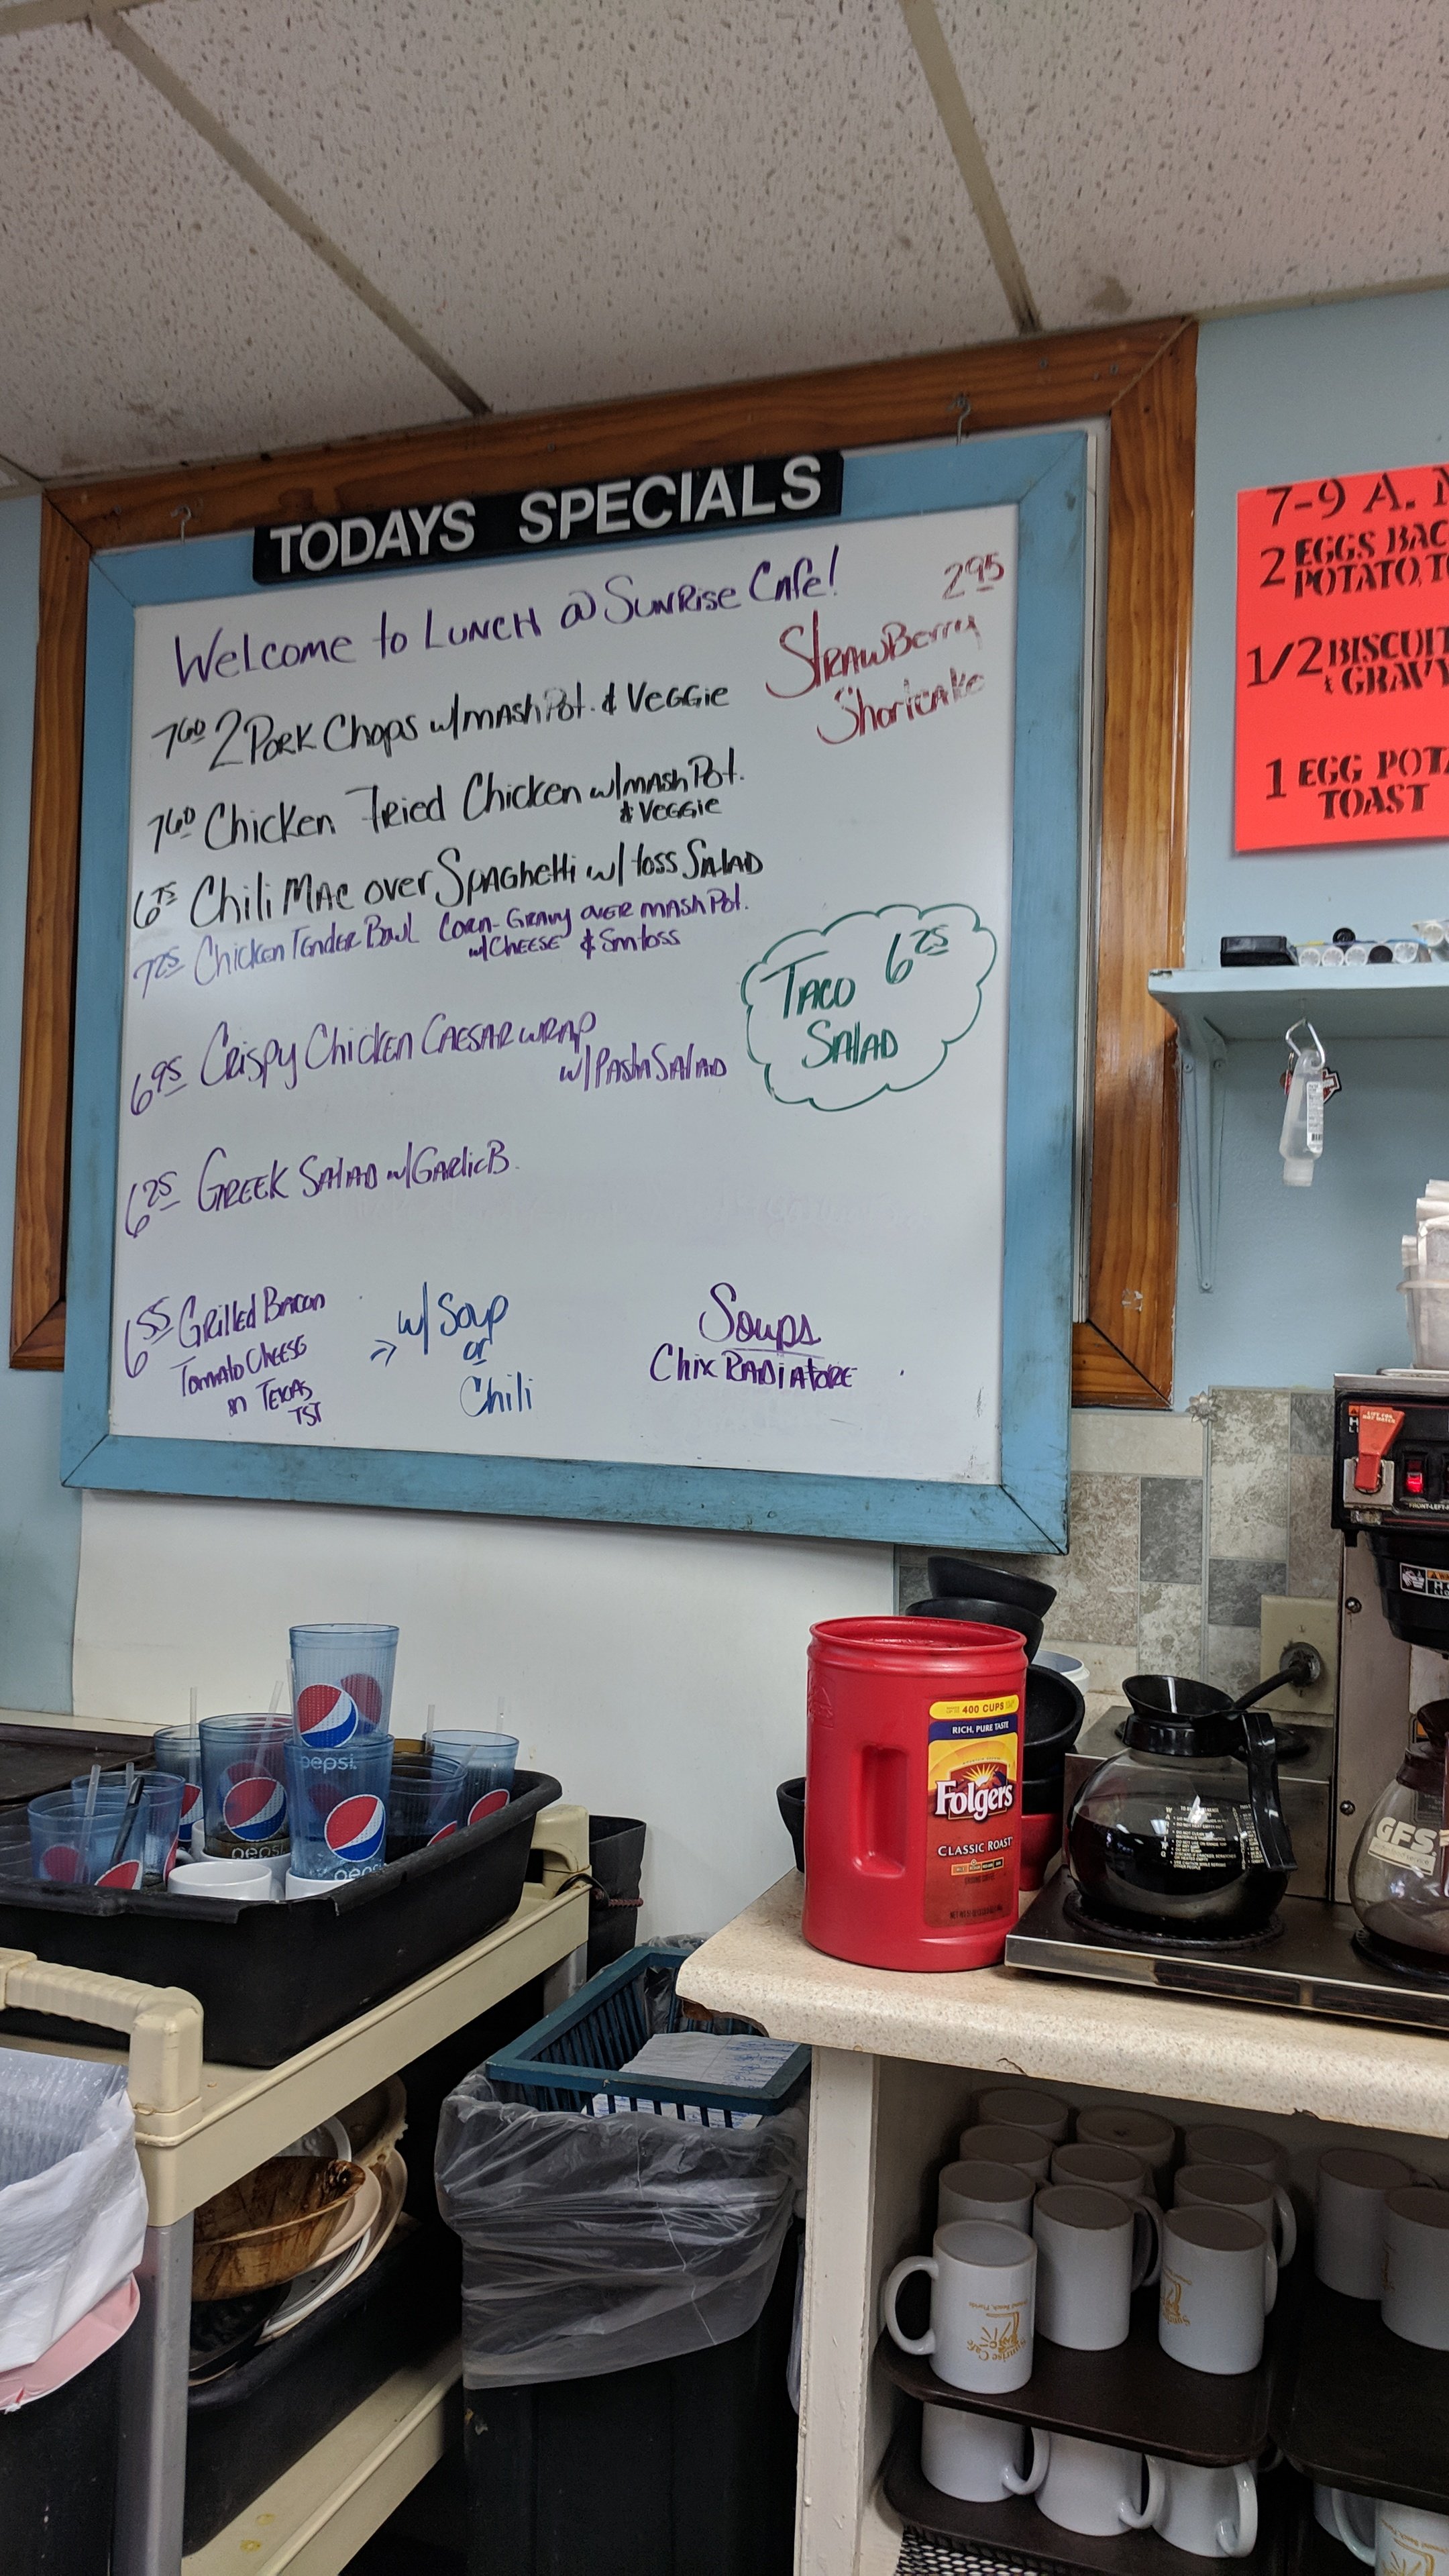 TODAYS SPECIALS
Welcome to LUNCH @ SUNRISE CAFE!
2 95
STRAWBERRY
Shortcake
7 60 2 PORK Chops w/ MASH Pot. & VEGGIE
7 60 Chicken Fried Chicken w/ MASH Pot.
& VEGGIE
6 75 Chili MAC over SPAGhetti w/ toss SALAD
7 25 Chicken Tender Bowl CORN-GRAVY OVER MASH Pot.
w/ CHEESE & Sm toss
TACO 6 25
SALAD
6 95 Crispy Chicken CAESAR WRAP
w/ PASTA SALAD
6 25 GREEK SALAD w/ GARLIC B.
6 55 GRilled BACON
TOMATO CHEESE
on TEXAS
TST
w/ Soup
or
Chili
Soups
Chix RADIATORE
7-9 A.
2 EGGS BAC
POTATO, TO
1/2 BISCUIT
& GRAVY
1 EGG POTA
TOAST
pepsi
pepsi
pepsi
400 CUPS
RICH, PURE TASTE
Folgers
CLASSIC ROAST
GROUND COFFEE
GFS
Sunrise Cafe